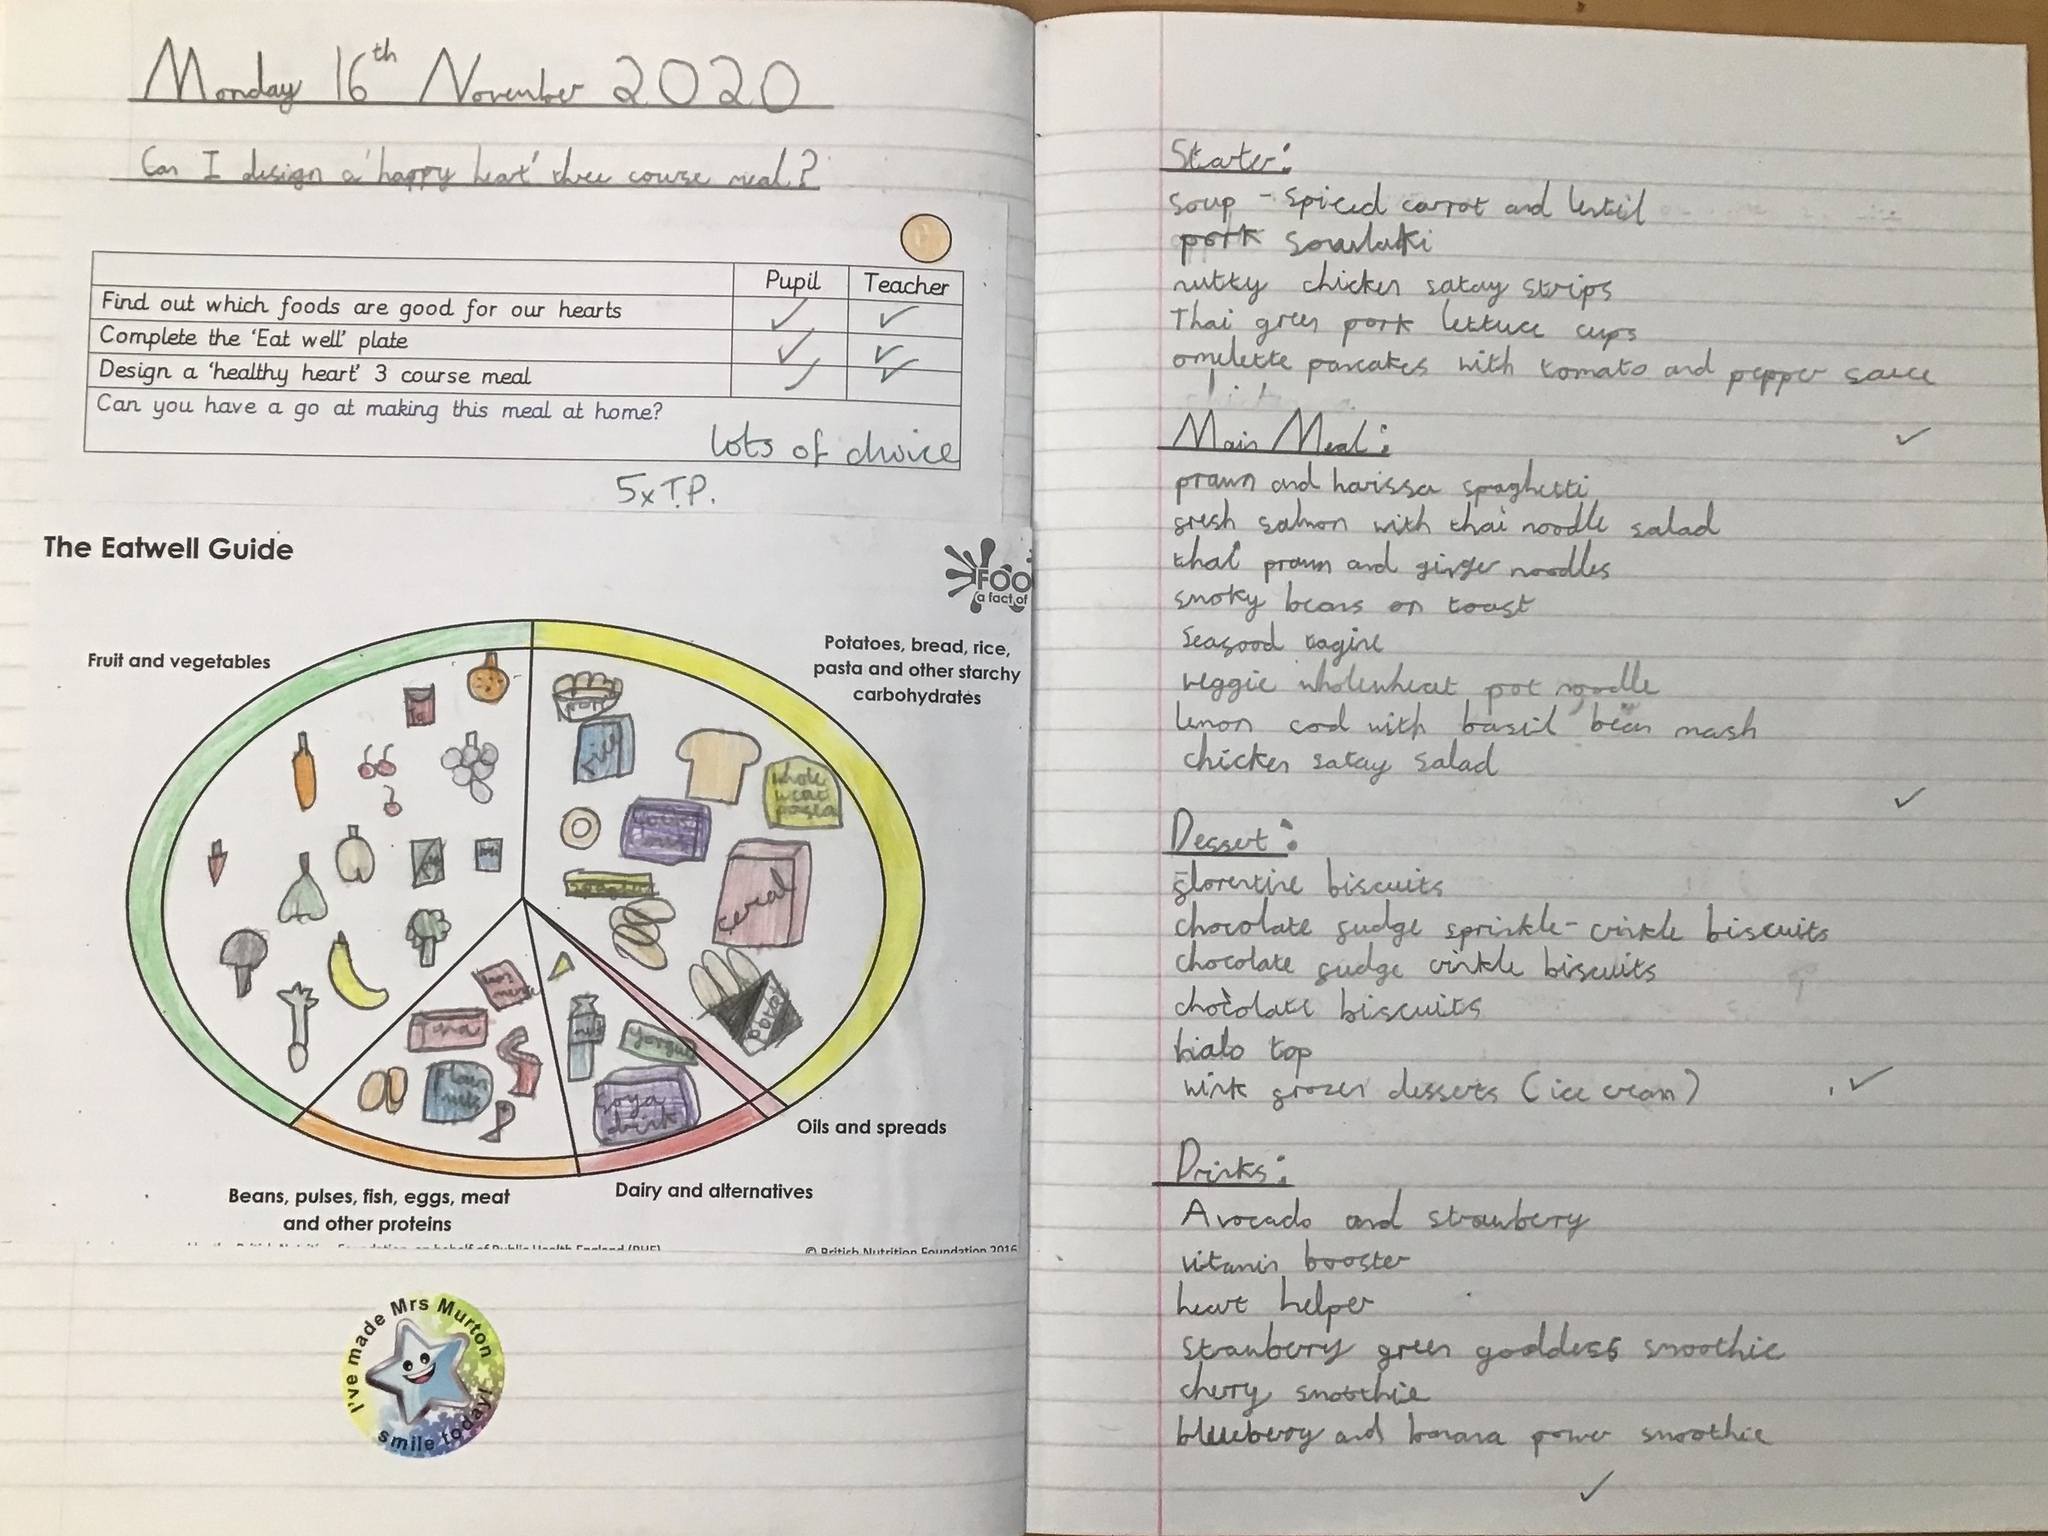 Monday 16th November 2020
Can I design a 'happy heart' three course meal?
Pupil Teacher
Find out which foods are good for our hearts
Complete the 'Eat well' plate
Design a 'healthy heart' 3 course meal
Can you have a go at making this meal at home?
lots of choice
5xT.P.
The Eatwell Guide
FOO
a fact of
Fruit and vegetables
Potatoes, bread, rice,
pasta and other starchy
carbohydrates
rice
whole
wheat
pasta
cereal
potato
Plain
nuts
tuna
milk
yorgurt
Soya
drink
Oils and spreads
Dairy and alternatives
Beans, pulses, fish, eggs, meat
and other proteins
© British Nutrition Foundation 2016
I've made Mrs Murton
smile today!
Starter:
soup - spiced carrot and lentil
pork souvlaki
nutty chicken satay strips
Thai green pork lettuce cups
omelette pancakes with tomato and pepper sauce
Main Meal:
prawn and harissa spaghetti
fresh salmon with thai noodle salad
thai prawn and ginger noodles
smoky beans on toast
Seafood tagine
veggie wholewheat pot noodle
lemon cod with basil bean mash
chicken satay salad
Dessert:
florentine biscuits
chocolate fudge sprinkle-crinkle biscuits
chocolate fudge crinkle biscuits
chocolate biscuits
halo top
wink frozen desserts (ice cream)
Drinks:
Avocado and strawbery
vitamin booster
heart helper
Strawberry green goddess smoothie
chery smoothie
blueberry and banana power smoothie